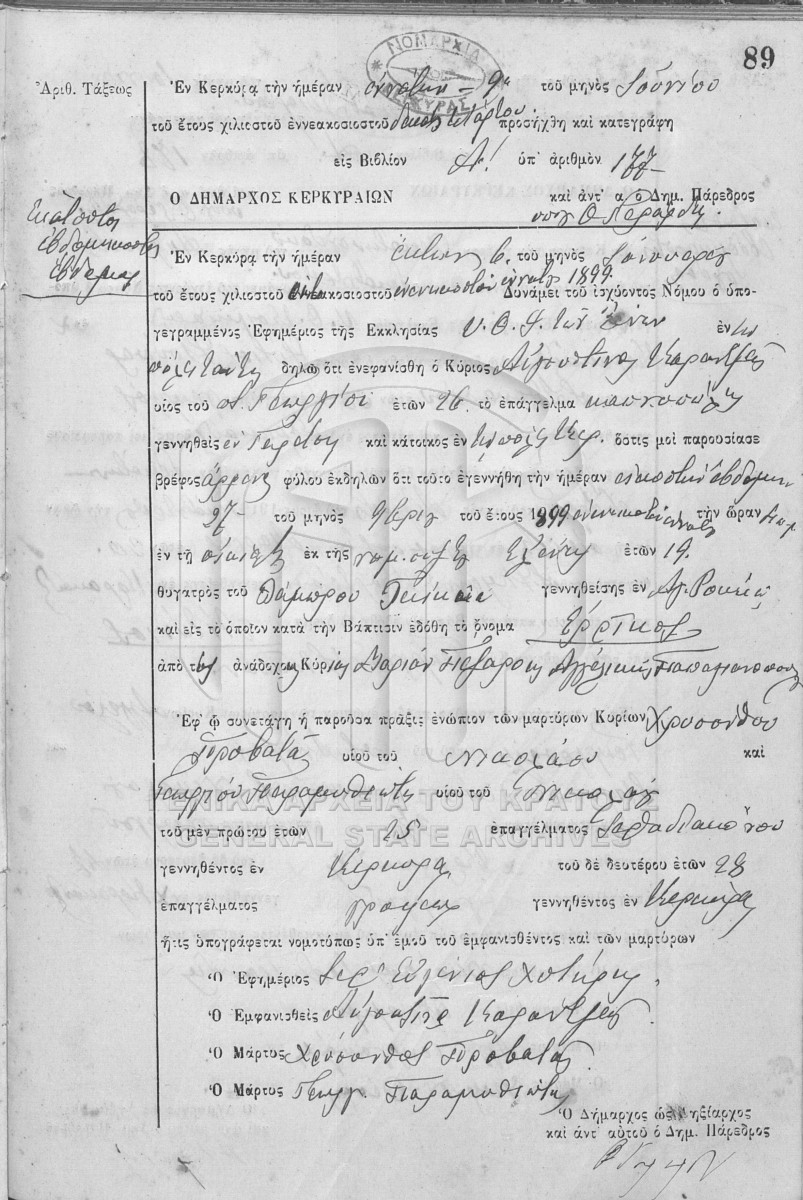 89
ΝΟΜΑΡΧΙΑ
ΚΕΡΚΥΡΑΣ
Ἀριθ. Τάξεως
Ἐν Κερκύρᾳ τὴν ἡμέραν ἐννάτην - 9ην τοῦ μηνὸς Ἰουνίου
τοῦ ἔτους χιλιοστοῦ ἐννεακοσιοστοῦ δεκάτου τετάρτου. προσήχθη καὶ κατεγράφη
εἰς Βιβλίον Α! ὑπ' ἀριθμὸν 177-
Ο ΔΗΜΑΡΧΟΣ ΚΕΡΚΥΡΑΙΩΝ καὶ ἀντ' α ὁ Δημ. Πάρεδρος
Ἑκατοστὸς
ἑβδομηκοστὸς
ἕβδομος
Ἐν Κερκύρᾳ τὴν ἡμέραν ἕκτην 6. τοῦ μηνὸς Ἰανουαρίου
τοῦ ἔτους χιλιοστοῦ ὀκτακοσιοστοῦ ἐνενηκοστοῦ ἐννάτου 1899 Δυνάμει τοῦ ἰσχύοντος Νόμου ὁ ὑπο-
γεγραμμένος Ἐφημέριος τῆς Ἐκκλησίας Υ. Θ. τῶν Ξένων ἐν τῇ
πόλει ταύτῃ δηλῶ ὅτι ἐνεφανίσθη ὁ Κύριος Αὐγουστῖνος
υἱὸς τοῦ Γεωργίου ἐτῶν 26 τὸ ἐπάγγελμα καπνοπώλης
γεννηθεὶς ἐν καὶ κάτοικος ἐν τῇ πόλει Κερ. ὅστις μοὶ παρουσίασε
βρέφος ἄρρεν φύλου ἐκδηλῶν ὅτι τοῦτο ἐγεννήθη τὴν ἡμέραν εἰκοστὴν ἑβδόμην
27- τοῦ μηνὸς 9βρίου τοῦ ἔτους 1899 ἐνενηκοστοῦ ἐννάτου τὴν ὥραν
ἐν τῇ οἰκίᾳ ἐκ τῆς νομ. συζ. Ἑλένης ἐτῶν 19.
θυγατρὸς τοῦ Λάμπρου γεννηθείσης ἐν
καὶ εἰς τὸ ὁποῖον κατὰ τὴν Βάπτισιν ἐδόθη τὸ ὄνομα Ἐρρῖκος
ἀπὸ τοὺς ἀναδόχους Κυρίας Ἀγγελικῆς Παπαγιαννοπούλου
Ἐφ' ᾧ συνετάγη ἡ παροῦσα πρᾶξις ἐνώπιον τῶν μαρτύρων Κυρίων Χρυσάνθου
Προβατᾶ υἱοῦ τοῦ Νικολάου καὶ
Γεωργίου Παραμυθιώτη υἱοῦ τοῦ Νικολάου
τοῦ μὲν πρώτου ἐτῶν 25 ἐπαγγέλματος Ἱεροδιακόνου
γεννηθέντος ἐν Κέρκυρα τοῦ δὲ δευτέρου ἐτῶν 28
ἐπαγγέλματος γραφέως γεννηθέντος ἐν Κερκύρᾳ
ἥτις ὑπογράφεται νομοτύπως ὑπ' ἐμοῦ τοῦ ἐμφανισθέντος καὶ τῶν μαρτύρων
Ὁ Ἐφημέριος Ἱερ. Εὐγένιος Χυτήρης.
Ὁ Ἐμφανισθεὶς Αὐγουστῖνος
Ὁ Μάρτυς Χρύσανθος Προβατᾶς.
Ὁ Μάρτυς Γεώργ. Παραμυθιώτης
Ὁ Δήμαρχος ὡς Ληξίαρχος
καὶ ἀντ' αὐτοῦ ὁ Δημ. Πάρεδρος
ΓΕΝΙΚΑ ΑΡΧΕΙΑ ΤΟΥ ΚΡΑΤΟΥΣ
GENERAL STATE ARCHIVES